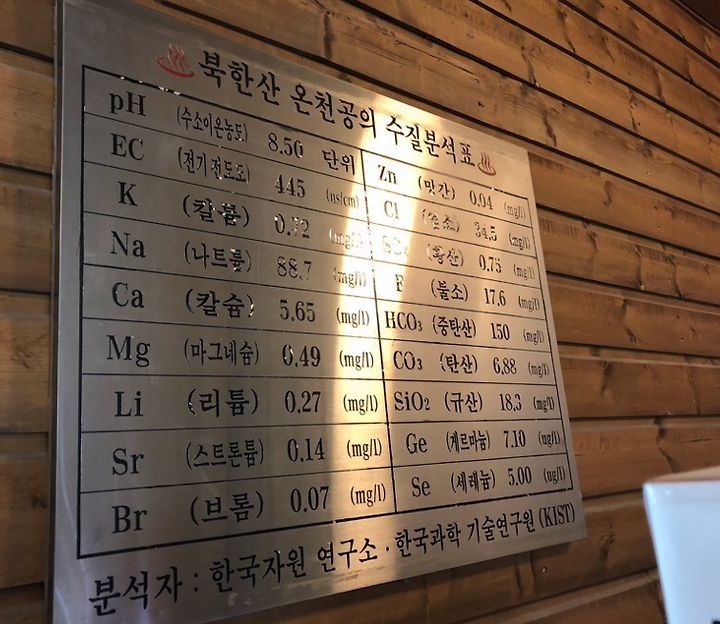 북한산 온천공의 수질분석표
pH (수소이온농도) 8.50 단위
EC (전기전도도) 445 (us/cm)
K (칼륨) 0.72 (mg/l)
Na (나트륨) 88.7 (mg/l)
Ca (칼슘) 5.65 (mg/l)
Mg (마그네슘) 0.49 (mg/l)
Li (리튬) 0.27 (mg/l)
Sr (스트론튬) 0.14 (mg/l)
Br (브롬) 0.07 (mg/l)
Zn (망간) 0.04 (mg/l)
Cl (염소) 34.5 (mg/l)
(황산) 0.75 (mg/l)
F (불소) 17.6 (mg/l)
HCO₃ (중탄산) 150 (mg/l)
CO₃ (탄산) 6.88 (mg/l)
SiO₂ (규산) 18.3 (mg/l)
Ge (게르마늄) 7.10 (ug/l)
Se (세레늄) 5.00 (ug/l)
분석자 : 한국자원 연구소 · 한국과학 기술연구원 (KIST)